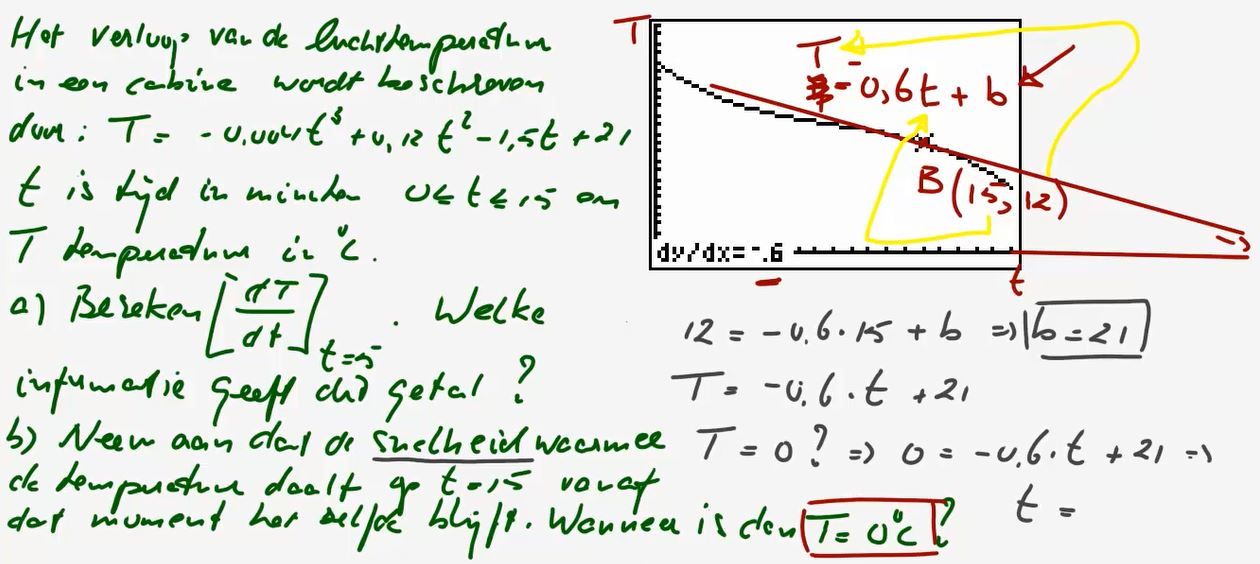 Het verloop van de luchttemperatuur
in een cabine wordt beschreven
door: T = -0,004t³ + 0,12t² - 1,5t + 21
t is tijd in minuten 0 ≤ t ≤ 15 en
T temperatuur in °C.
a) Bereken [dT/dt] t=5 . Welke
informatie geeft dit getal?
b) Neem aan dat de snelheid waarmee
de temperatuur daalt op t=15 vanaf
dat moment het zelfde blijft. Wanneer is dan T= 0°C ?
T
T
= -0,6t + b
B (15, 12)
dy/dx=-.6
t
12 = -0,6·15 + b ⇒ b = 21
T = -0,6·t + 21
T = 0? ⇒ 0 = -0,6·t + 21 ⇒
t =